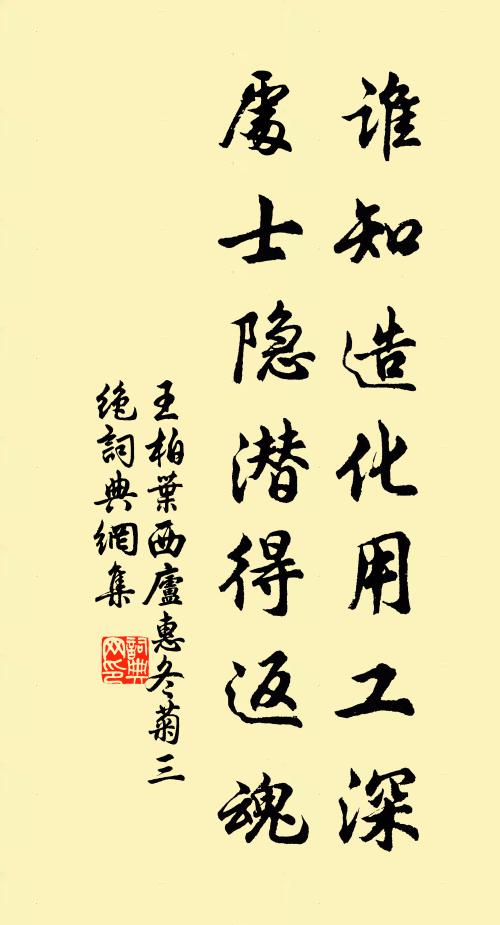 谁知造化用工深
處士隐潜得返魂
王柏葉西廬惠冬菊三
绝詞典網集
詞典网印